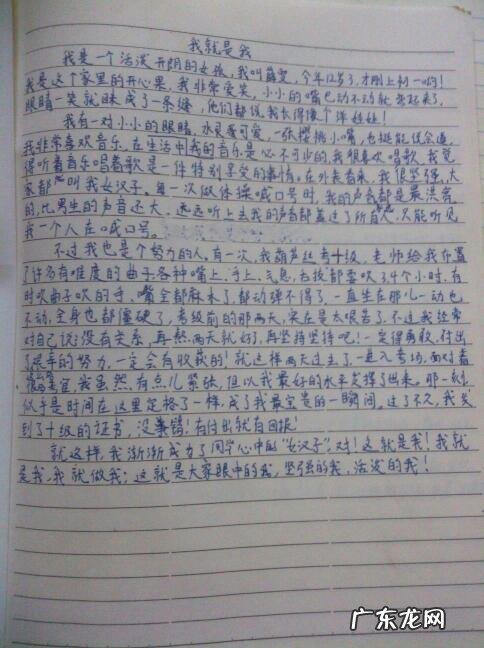 我就是我
我是一个活泼开朗的女孩,我叫薛雯,今年12岁了,才刚上初一哟!
我是这个家里的开心果,我非常爱笑,小小的嘴巴动不动就
眼睛一笑就眯成了一条缝,他们都说我长得像个洋娃娃!
我有一对小小的眼睛,水灵 可爱,一张樱桃小嘴,也挺能说会道,
我非常喜欢音乐,在生活中我的音乐是必不可少的,我很喜欢唱歌,我觉
得听着音乐唱着歌是一件特别享受的事情,在外表看来,我很坚强,大
家都叫我女汉子。每一次做体操喊口号时,我的声音都是最洪亮
的,比男生的声音还大。远远听上去我的声音都盖过了所有人,只能听见
我一个人在喊口号。
不过我也是个努力的人,有一次,我葫芦丝考十级,老师给我布置
了许多有难度的曲子各种嘴上、手上、气息、舌技都要吹了,4个小时,有
时吹曲子吹的手、嘴全都麻木了,都动弹不得了,一直坐在那儿一动也
不动,全身也都僵硬了,考级前的那两天,实在是太艰苦了,不过我经常
对自己说:没有关系,再熬两天就好,再坚持坚持吧!一定得勇敢,付出
了艰辛的努力,一定会有收获的!就这样两天过去了,一进入考场,面对着
考官,我虽然有点儿紧张,但以我最好的水平发挥了出来。那一刻,
似乎是时间在这里定格了一样,成了我最宝贵的一瞬间。过了不久,我失
到了十级的证书,没 !有付出就有回报!
就这样,我渐渐成为了同学心中的“女汉子”,对!这就是我!我就
是我,我就做我;这就是大家眼中的我,坚强的我,活泼的我!
广东龙网